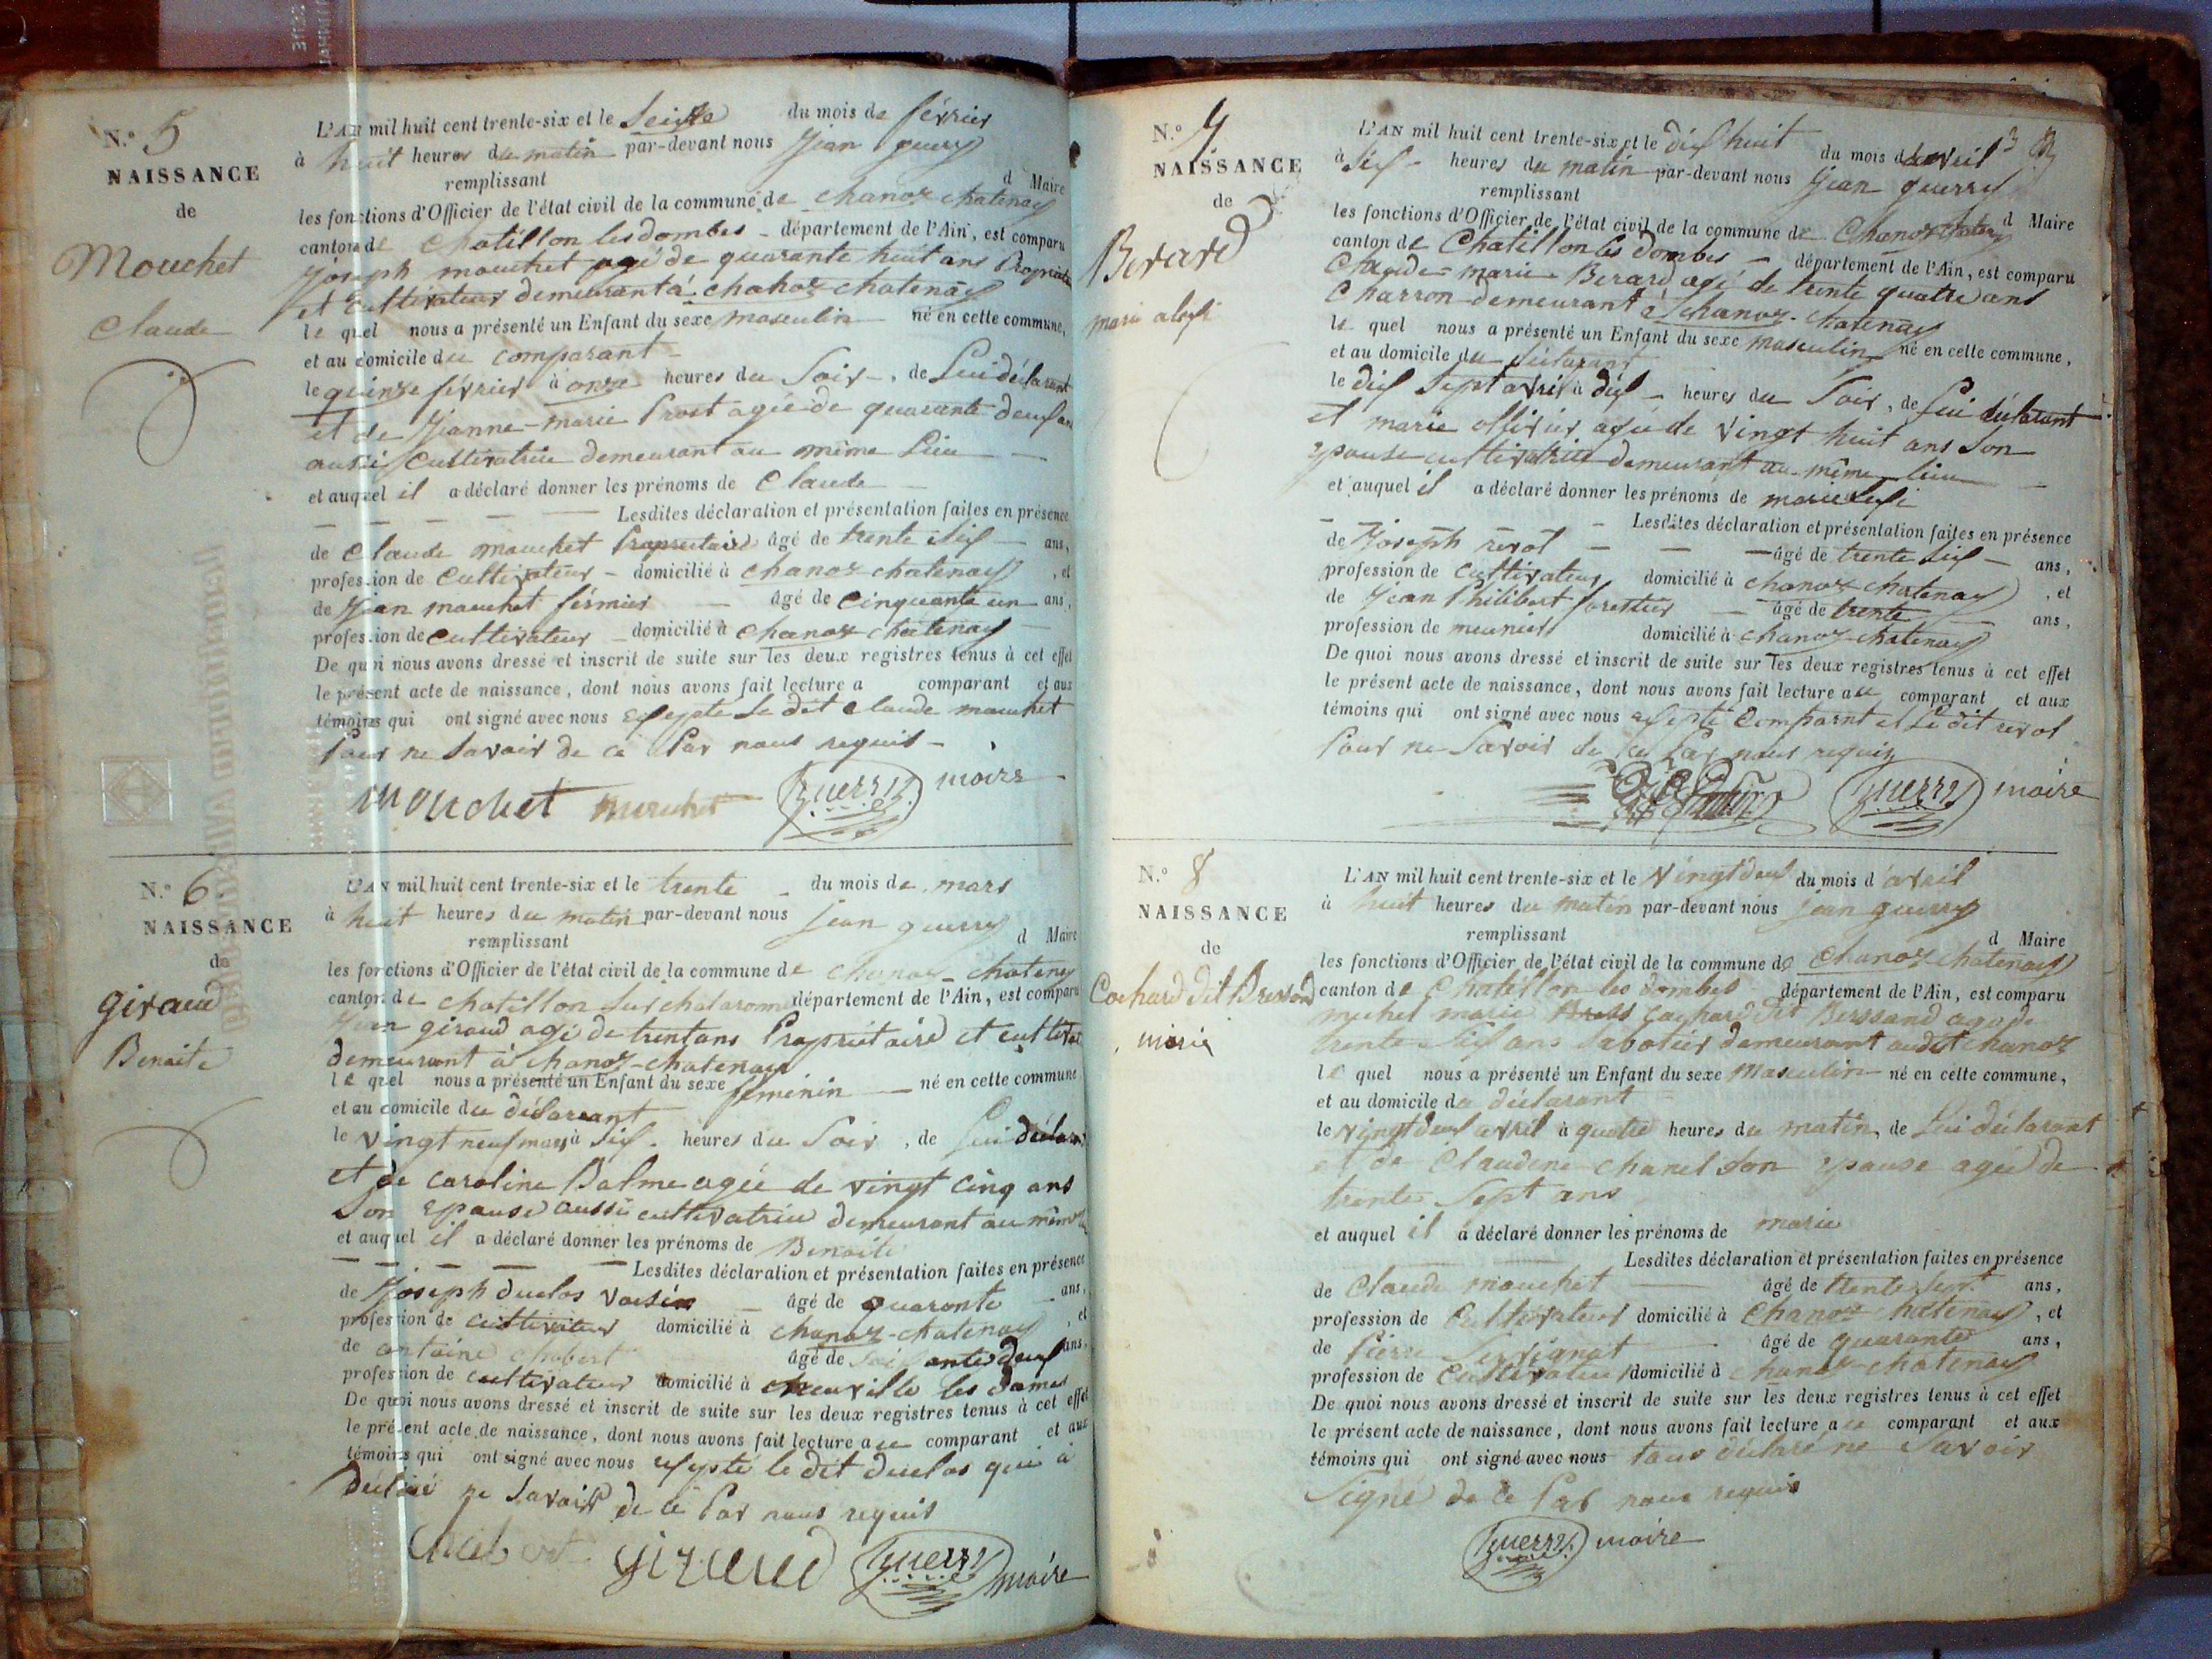 N.º 5
NAISSANCE
de
Mouchet
Claude
L'AN mil huit cent trente-six et le Seize du mois de février
à huit heures du matin par-devant nous Jean guerry
remplissant d Maire
les fonctions d'Officier de l'état civil de la commune de chanoz chatenay
canton de Chatillon les dombes – département de l'Ain, est comparu
Joseph mouchet agé de quarante huit ans Propriétaire
et cultivateur demeurant à chanoz chatenay
le quel nous a présenté un Enfant du sexe masculin né en cette commune,
et au domicile du comparant
le quinze février à onze heures du Soir –, de Lui déclarant
et de Jeanne-marie Prost agée de quarante deux ans
aussi Cultivatrice demeurant au même Lieu
et auquel il a déclaré donner les prénoms de Claude
Lesdites déclaration et présentation faites en présence
de Claude mouchet Propriétaire âgé de trente ans,
profession de Cultivateur – domicilié à chanoz-chatenay, et
de Jean mouchet fermier âgé de Cinquante un ans,
profession de Cultivateur domicilié à chanoz chatenay
De quoi nous avons dressé et inscrit de suite sur les deux registres tenus à cet effet
le présent acte de naissance, dont nous avons fait lecture a comparant et aux
témoins qui ont signé avec nous Le dit Claude mouchet
Pour ne Savoir de ce Par nous requis –
mouchet mouchet guerry maire
N.º 6
NAISSANCE
de
giraud
Benoite
L'AN mil huit cent trente-six et le trente du mois de mars
à huit heures du matin par-devant nous jean guerry
remplissant d Maire
les fonctions d'Officier de l'état civil de la commune de chanoz-chatenay
canton de chatillon Sur chalaronne département de l'Ain, est comparu
giraud agé de trentans Propriétaire et cultivat
demeurant à chanoz-chatenay
le quel nous a présenté un Enfant du sexe féminin – né en cette commune
et au domicile du déclarant
le vingt neuf mars à Six heures du Soir, de Lui déclarant
et de caroline Balme agée de vingt cinq ans
Son Epouse aussi cultivatrice demeurant au même
et auquel il a déclaré donner les prénoms de Benoite
Lesdites déclaration et présentation faites en présence
de Joseph duclos voisin âgé de quarante ans,
profession de cultivateur domicilié à chanoz-chatenay, et
de antoine chabert âgé de Soixante deux ans,
profession de cultivateur domicilié à neuville les dames
De quoi nous avons dressé et inscrit de suite sur les deux registres tenus à cet effet
le présent acte de naissance, dont nous avons fait lecture au comparant et aux
témoins qui ont signé avec nous le dit duclos qui à
Déclaré ne Savoir de ce Par nous requis
Chabert giraud guerry maire
N.º 7
NAISSANCE
de
Berard
marie
L'AN mil huit cent trente-six et le dix huit du mois d'avril
à Six heures du matin par-devant nous Jean guerry
remplissant d Maire
les fonctions d'Officier de l'état civil de la commune de Chanoz chatenay
canton de Chatillon les dombes – département de l'Ain, est comparu
Claude-marie Berard agé de trente quatre ans
Charron demeurant à chanoz-chatenay
le quel nous a présenté un Enfant du sexe masculin né en cette commune,
et au domicile du déclarant
le dix Sept avril à dix – heures du Soir, de Lui déclarant
et marie ollivier agée de vingt huit ans Son
epouse cultivatrice demeurant au même lieu
et auquel il a déclaré donner les prénoms de marie
Lesdites déclaration et présentation faites en présence
de Joseph revol âgé de trente Six – ans,
profession de Cultivateur domicilié à chanoz chatenay, et
de Jean Philibert forestier âgé de trente ans,
profession de meunier domicilié à chanoz-chatenay
De quoi nous avons dressé et inscrit de suite sur les deux registres tenus à cet effet
le présent acte de naissance, dont nous avons fait lecture au comparant et aux
témoins qui ont signé avec nous et Le dit revol
Pour ne Savoir de ce Par nous requis
guerry maire
N.º 8
NAISSANCE
de
Cochard dit Bressand
marie
L'AN mil huit cent trente-six et le Vingt deux du mois d'avril
à huit heures du matin par-devant nous jean guerry
remplissant d Maire
les fonctions d'Officier de l'état civil de la commune de Chanoz chatenay
canton de Chatillon les dombes département de l'Ain, est comparu
michel marie Cochard dit Berssand agé de
trente Six ans Sabotier demeurant audit chanoz
le quel nous a présenté un Enfant du sexe Masculin né en cette commune,
et au domicile du déclarant
le vingt deux avril à quatre heures du matin, de Lui déclarant
et de Claudine chanel Son epouse agée de
trente Sept ans
et auquel il a déclaré donner les prénoms de marie
Lesdites déclaration et présentation faites en présence
de Claude mouchet âgé de trente Sept ans,
profession de Cultivateur domicilié à Chanoz chatenay, et
de Pierre âgé de quarante ans,
profession de Cultivateur domicilié à chanoz-chatenay
De quoi nous avons dressé et inscrit de suite sur les deux registres tenus à cet effet
le présent acte de naissance, dont nous avons fait lecture au comparant et aux
témoins qui ont signé avec nous tous déclaré ne Savoir
Signé de ce Par nous requis
guerry maire